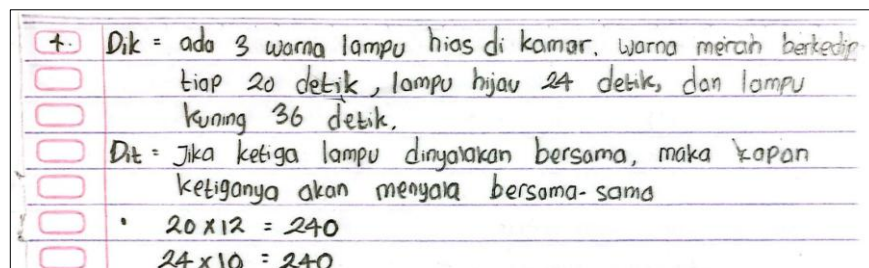 4. Dik = ada 3 warna lampu hias di kamar. warna merah berkedip
tiap 20 detik, lampu hijau 24 detik, dan lampu
kuning 36 detik.
Dit = Jika ketiga lampu dinyalakan bersama, maka kapan
ketiganya akan menyala bersama-sama
• 20 x 12 = 240
24 x 10 = 240